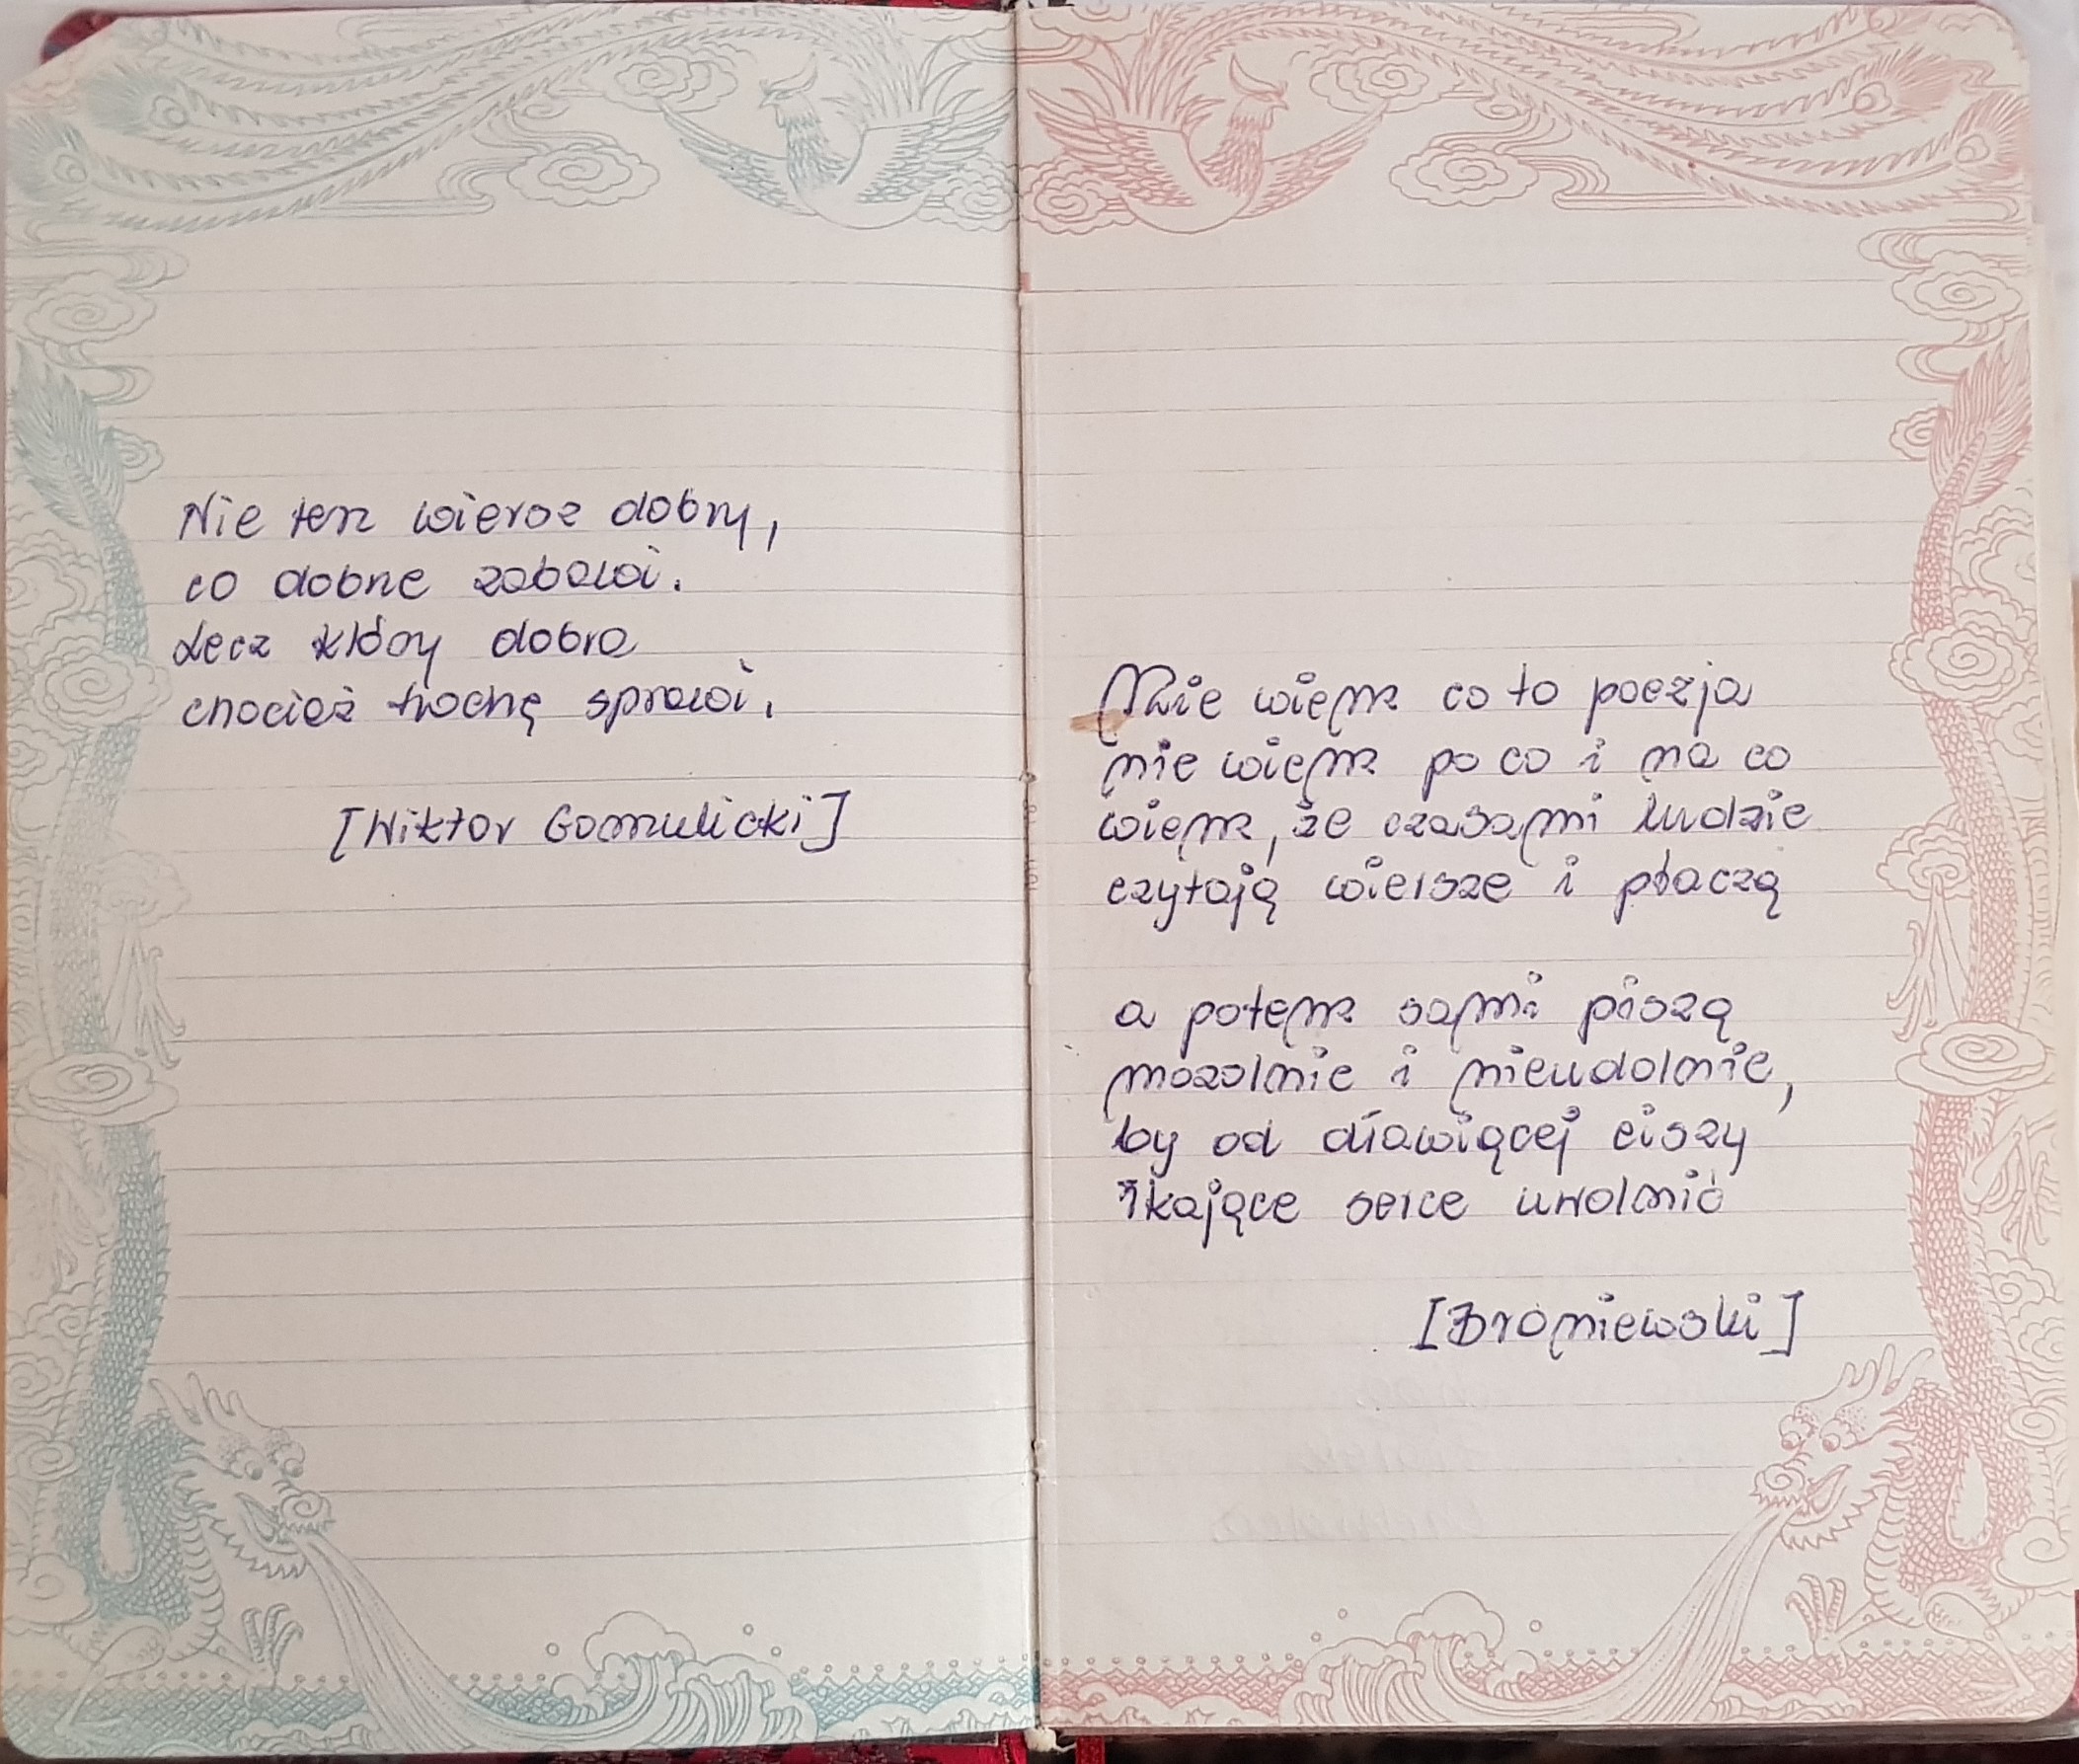 Nie ten wiersz dobry,
co dobrze zabawi.
Lecz który dobra
chociaż trochę sprawi.
[Wiktor Gomulicki]
Nie wiem co to poezja
nie wiem po co i na co
wiem, że czasami ludzie
czytają wiersze i płaczą
a potem sami piszą
mozolnie i nieudolnie,
by od dławiącej ciszy
łkające serce uwolnić
[Broniewski]